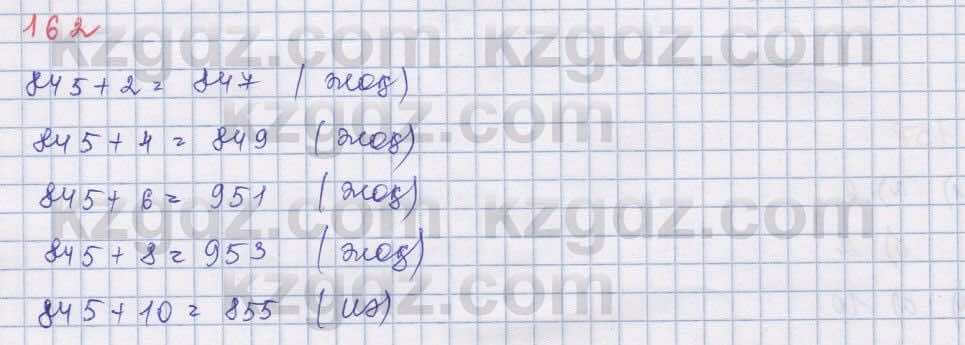 162
kzgdz.com kzgdz.com
845 + 2 = 847 (жоқ)
kzgdz.com
845 + 4 = 849 (жоқ)
845 + 6 = 951 (жоқ)
kzgdz.com kzgdz.com
845 + 8 = 953 (жоқ)
kzgdz.com
845 + 10 = 855 (иә)